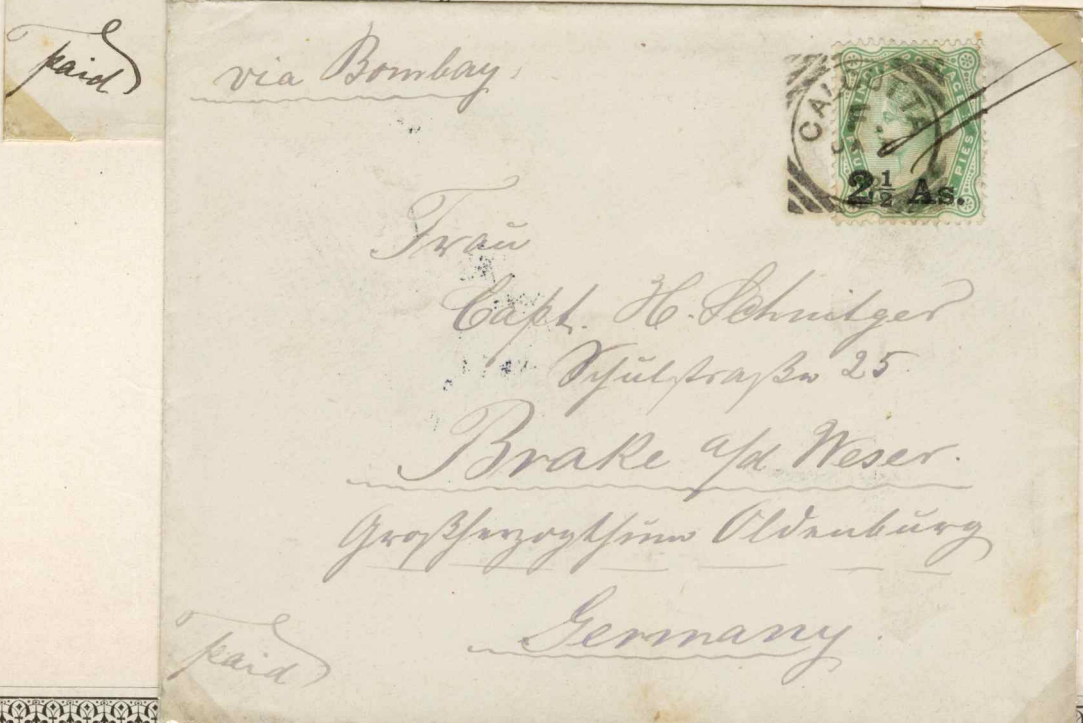 paid
via Bombay,
CALCUTTA
PIES
2½ As.
Frau
Capt. H. Schnitger
Schulstraße 25
Brake a/d Weser.
Großherzogthum Oldenburg
Germany.
paid